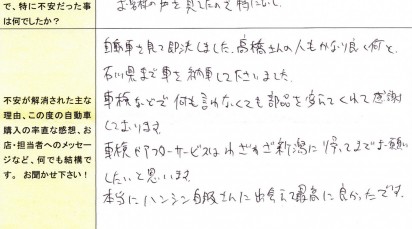 で、特に不安だった事
は何でしたか?
お客様の声を見てたので特になし。
不安が解消された主な
理由、この度の自動車
購入の率直な感想、お
店・担当者へのメッセー
ジなど、何でも結構で
す。 お聞かせ下さい!
自動車を見て即決しました。高橋さんの人もかなり良く何と、
石川県まで車を納車して下さいました。
車検などで何も言わなくても部品を変えてくれて感謝
しております。
車検やアフローサービスはわざわざ新潟に帰ってまでお願い
したいと思います。
本当にハンシン自販さんに出会えて最高に良かったです。